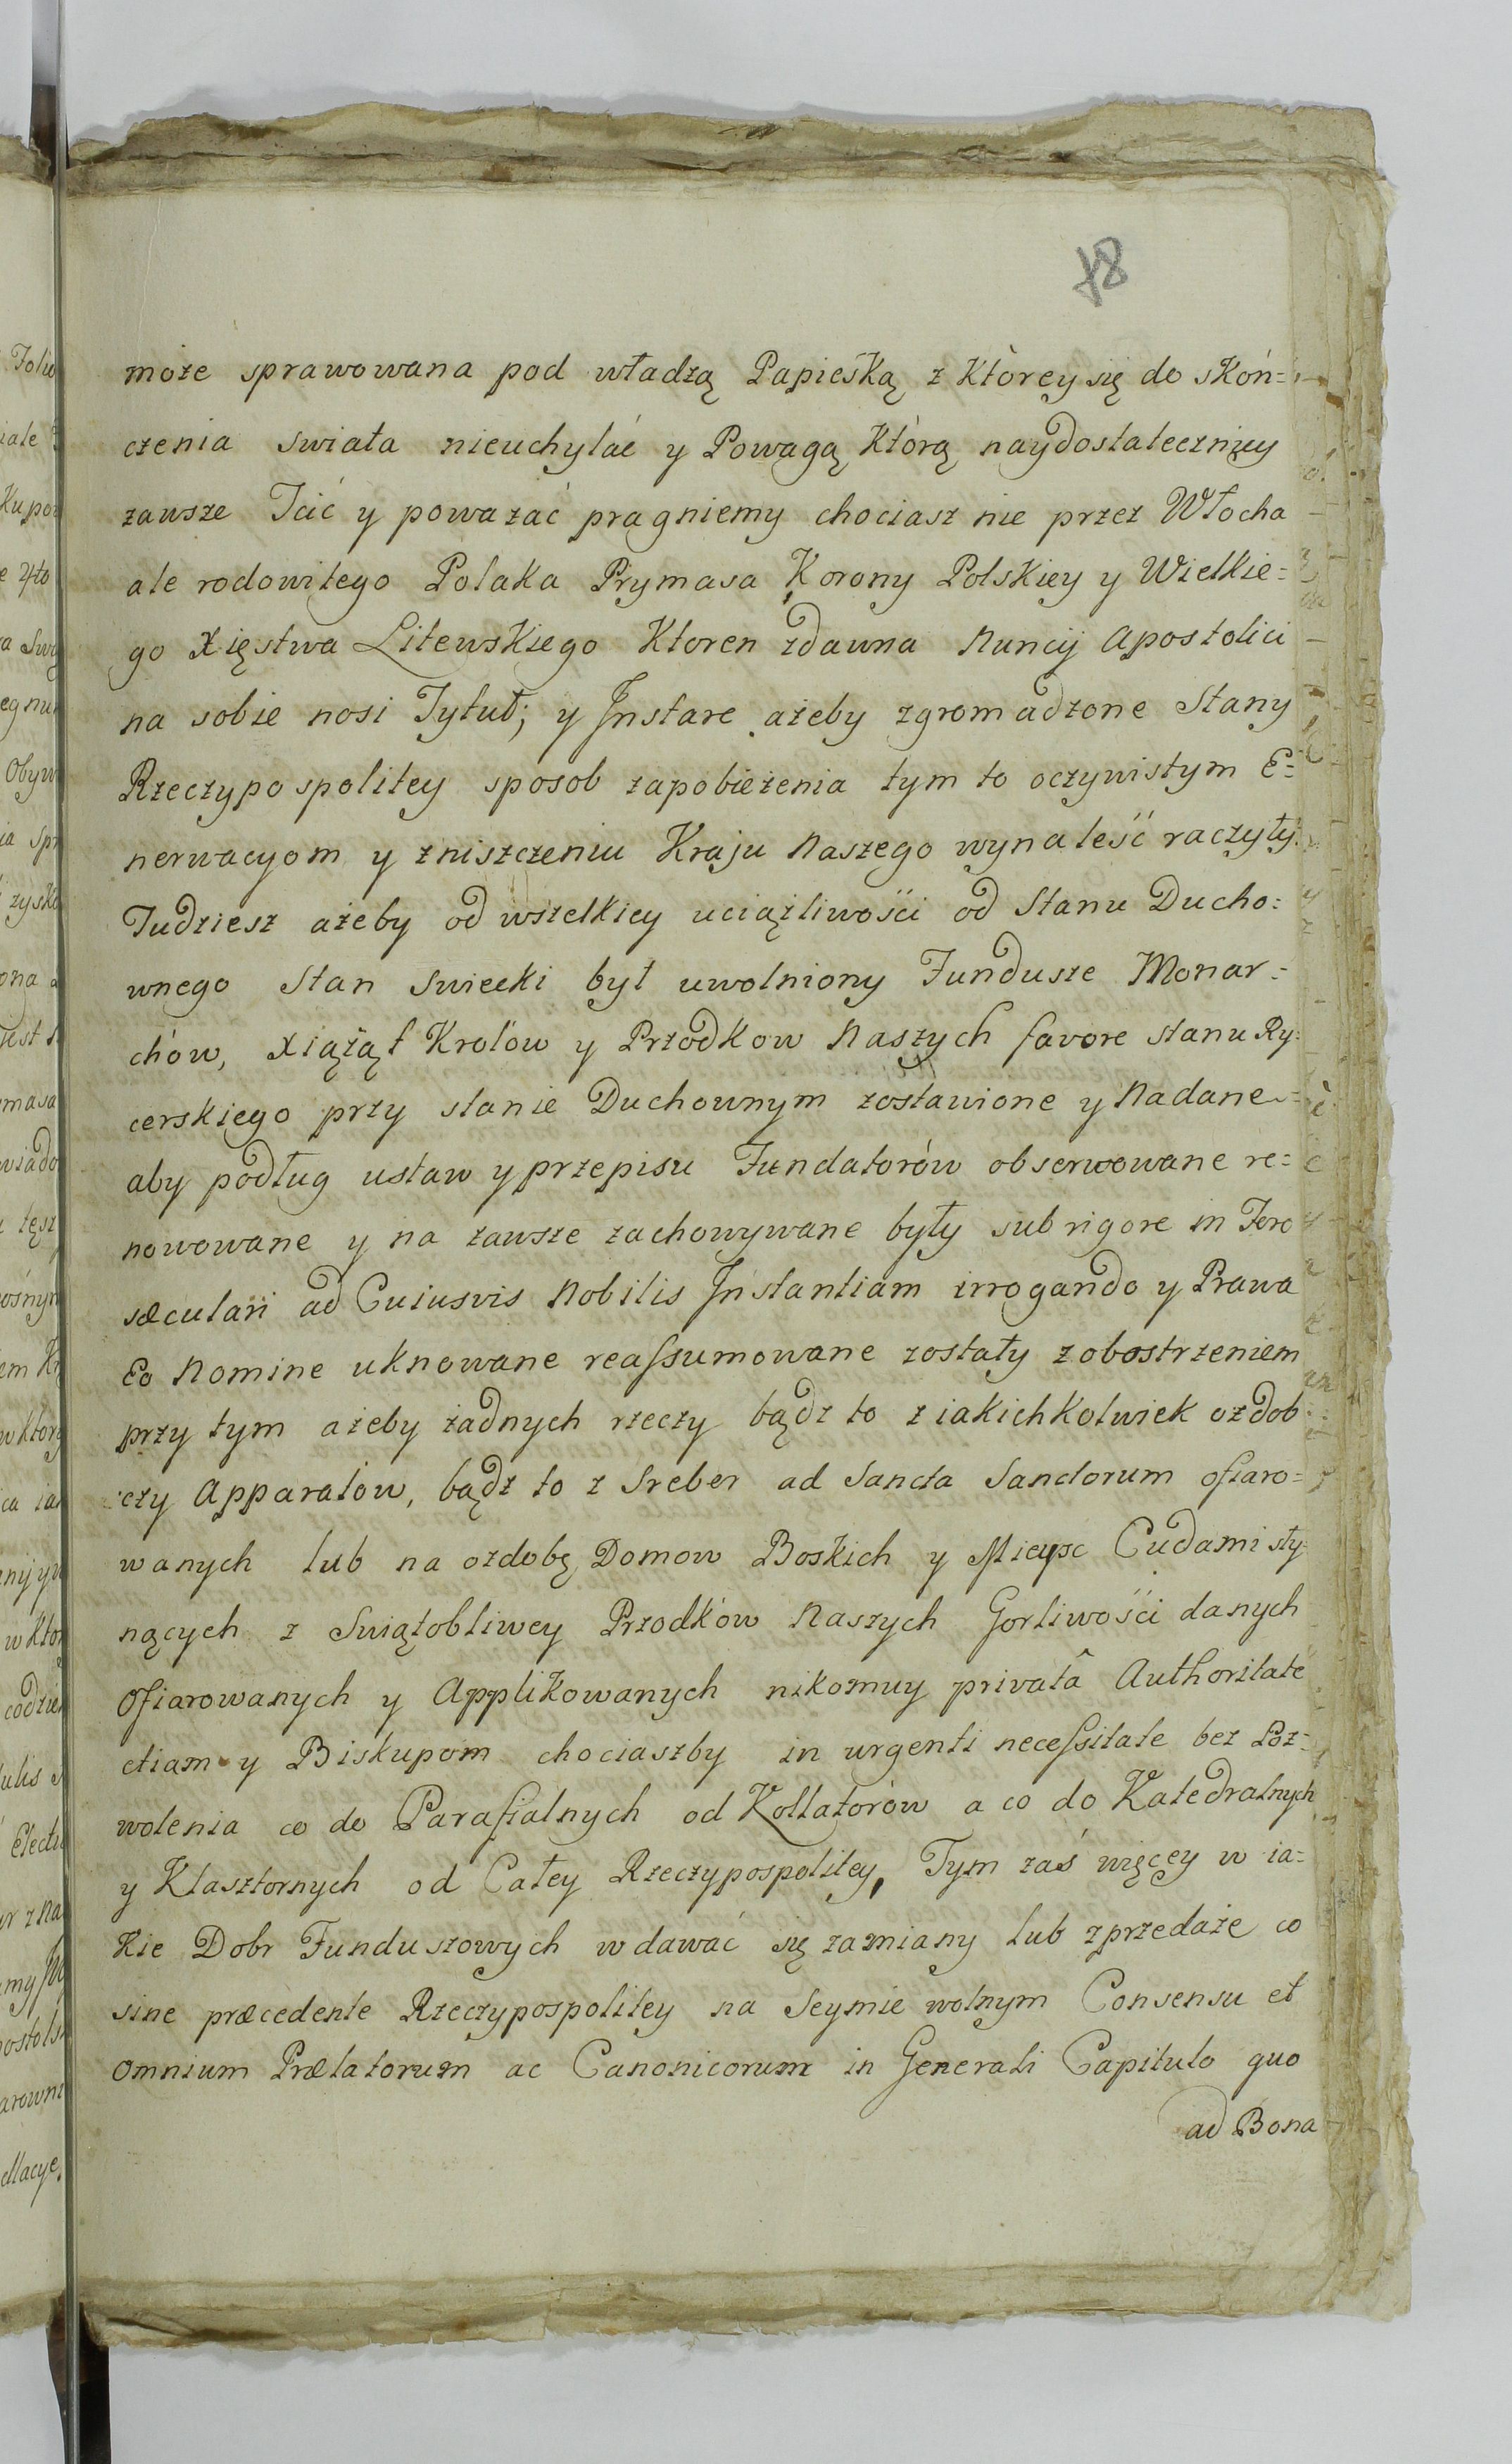 78
może sprawowana pod władzą Papieską z Którey się do skoń=
czenia swiata nieuchylać y Powagą Którą naydostateczniey
zawsze Tcić y poważać pragniemy chociasz nie przez Włocha
ale rodowitego Polaka Prymasa Korony Polskiey y Wielkie=
go Xięstwa Litewskiego Ktoren zdawna Nuncij Apostolici
na sobie nosi Tytuł; y Instare ażeby zgromadzone Stany
Rzeczypospolitey sposob zapobieżenia tym to oczywistym E=
nerwacyom y zniszczeniu Kraju Naszego wynaleść raczyły.
Tudziesz ażeby od wszelkiey uciążliwości od Stanu Ducho=
wnego Stan Swiecki był uwolniony Fundusze Monar=
chów, Xiążąt Krolów y Przodkow Naszych favore stanu Ry=
cerskiego przy stanie Duchownym zostawione y Nadane
aby podług ustaw y przepisu Fundatorów obserwowane re=
nowowane y na zawsze zachowywane były sub rigore in Foro
sæculari ad Cuiusvis Nobilis Instantiam irrogando y Prawa
Eo Nomine uknowane reassumowane zostały z obostrzeniem
przy tym ażeby żadnych rzeczy bądz to z iakichkolwiek ozdob
czy Apparatow, bądz to z Sreber ad Sancta Sanctorum ofiaro=
wanych lub na ozdobę Domow Boskich y Mieysc Cudami sły=
nących z Swiątobliwey Przodków Naszych Gorliwości danych
Ofiarowanych y Applikowanych nikomuy privatâ Authoritate
etiam y Biskupom chociaszby in urgenti necessitate bez Poz=
wolenia co do Parafialnych od Kollatorów a co do Katedralnych
y Klasztornych od Całey Rzeczypospolitey, Tym zaś więcey w ia=
kie Dobr Funduszowych wdawać się zamiany lub zprzedaże co
sine præcedente Rzeczypospolitey na Seymie wolnym Consensu et
omnium Prælatorum ac Canonicorum in Generali Capitulo quo
ad Bona